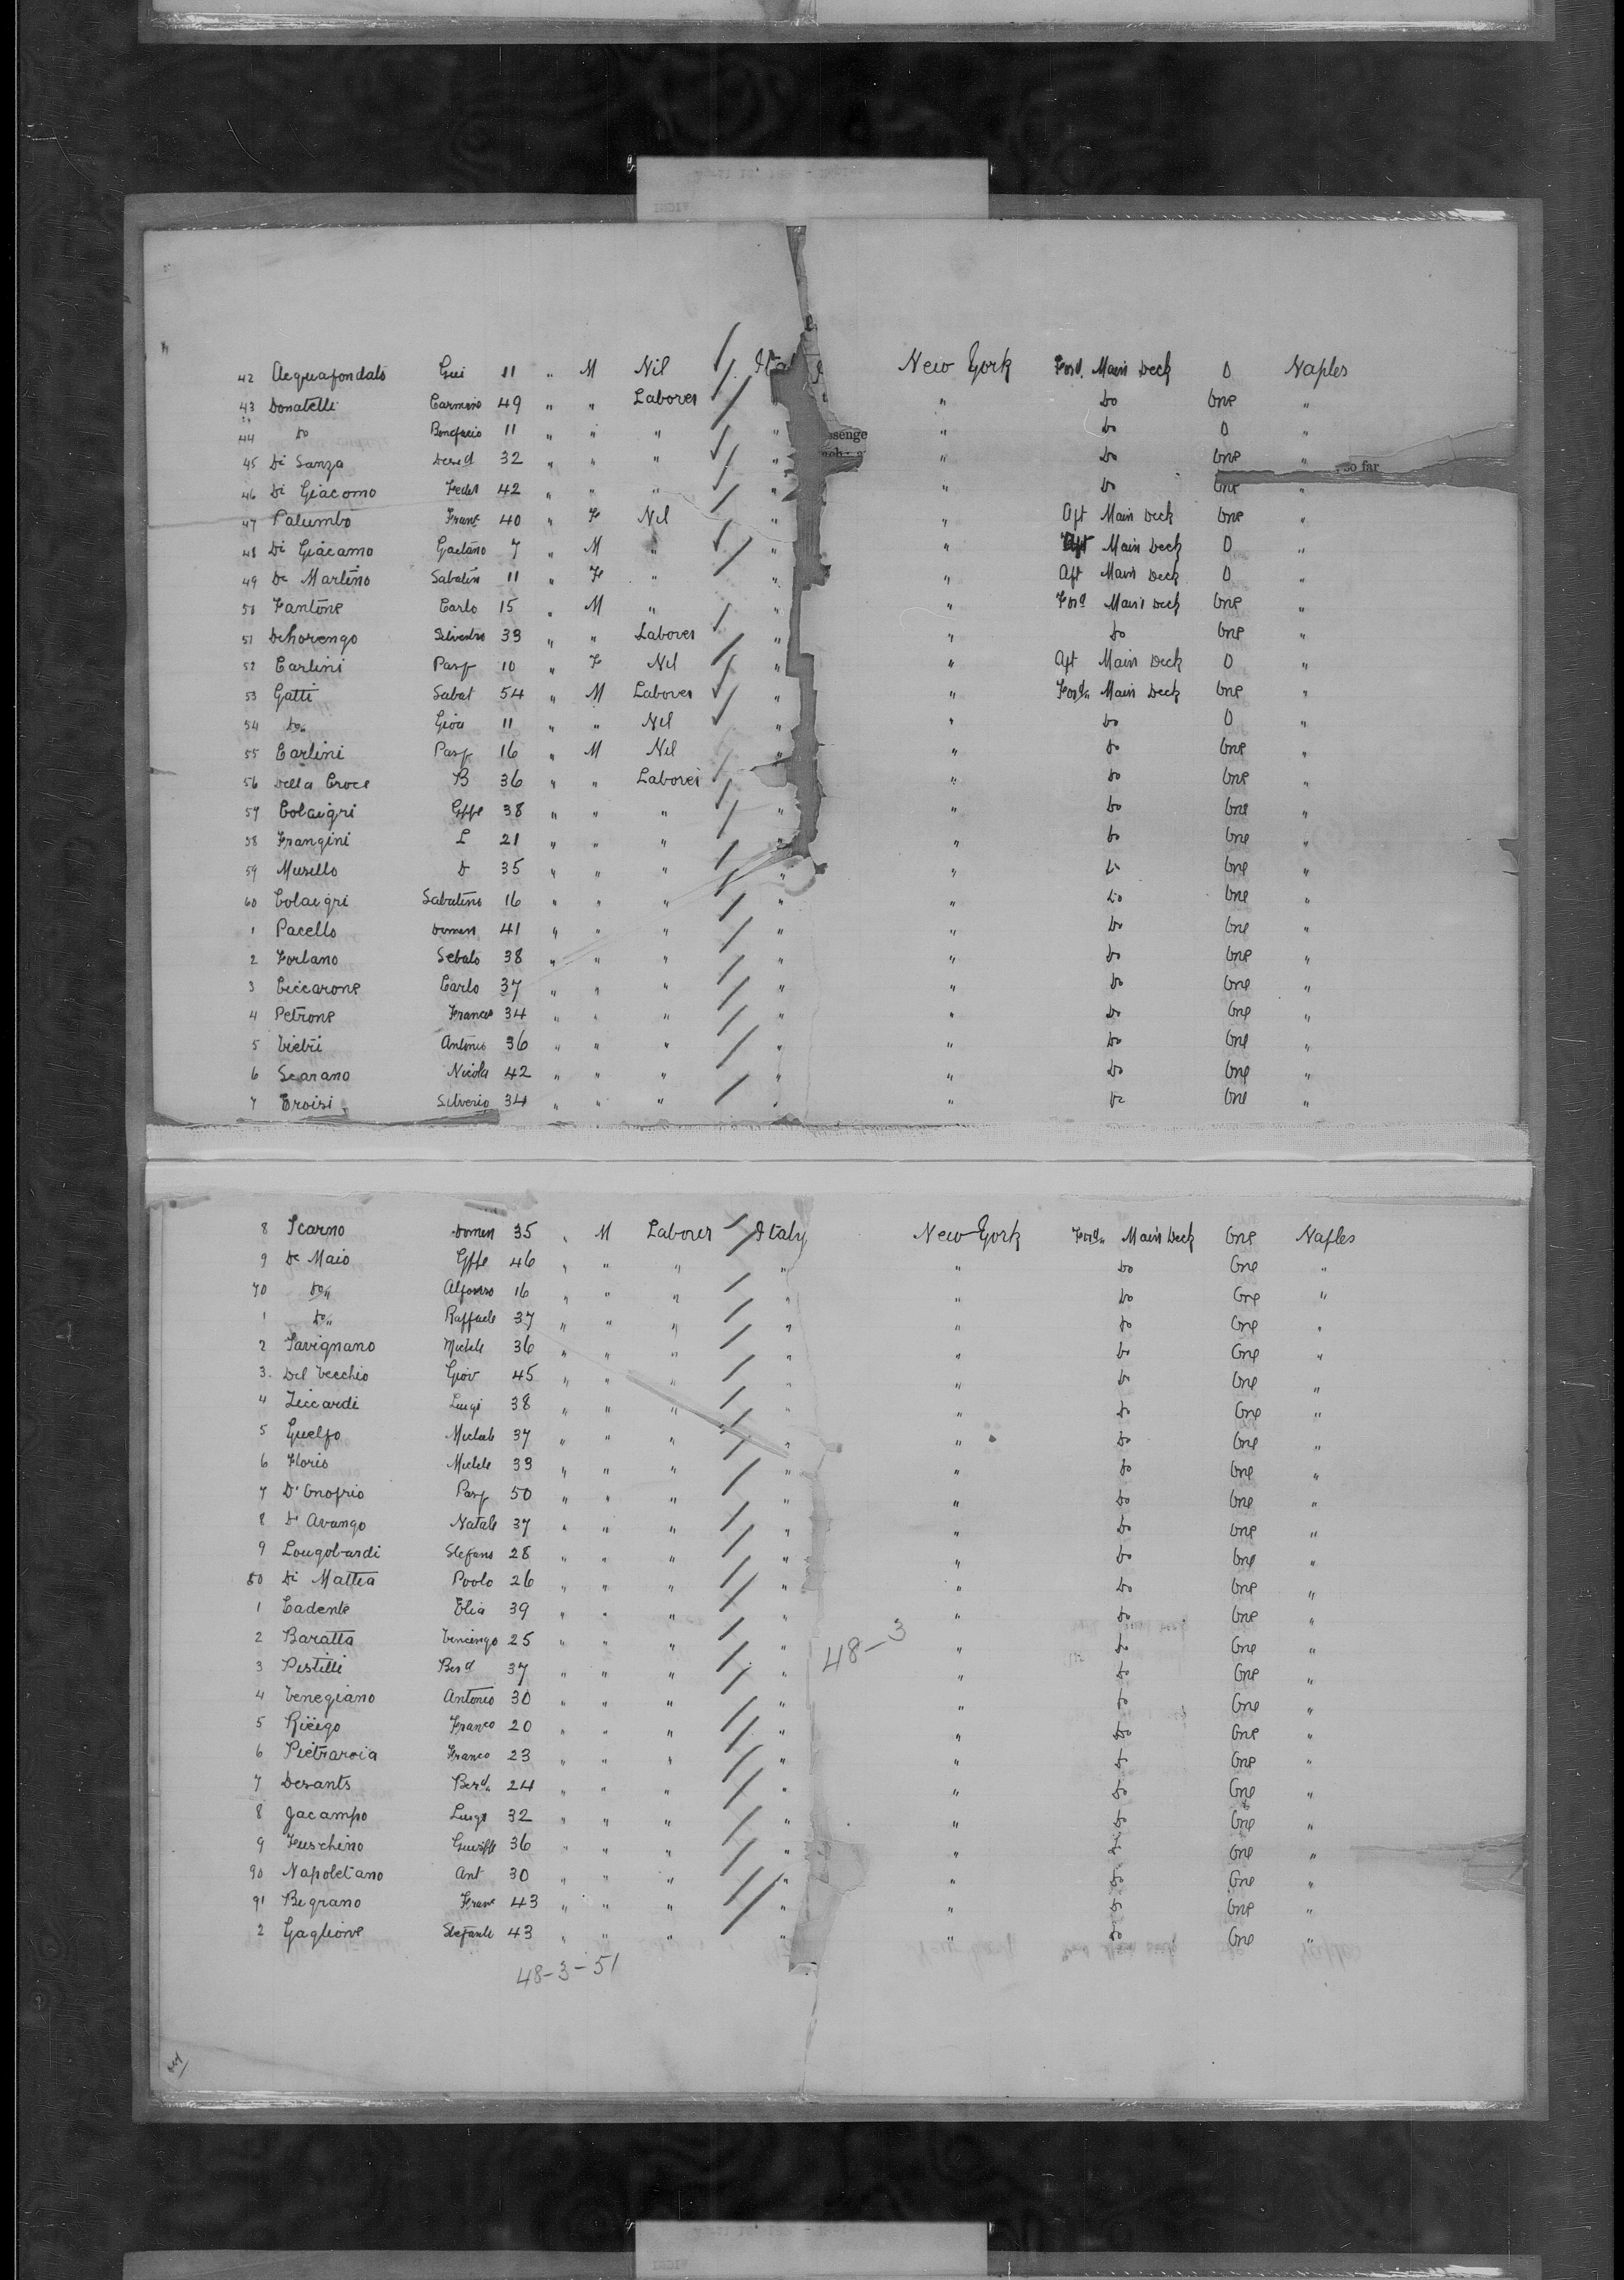 42 Acquafondalo Gui 11 " M Nil Ital New York Ford. Main Deck 0 Naples
43 Donatelli Carmino 49 " " Laborer " Do One "
44 Do Bonefacio 11 " " " " " Do 0 "
45 Di Sanza 32 " " " " " Do One "
ssenge
so far
46 Di Giacomo Feder 42 " " " " " Do One "
47 Palumbo Franc 40 " F Nil " " Aft Main Deck One "
48 Di Giacamo Gaetano 7 " M " " " Aft Main Deck 0 "
49 De Martino Sabatin 11 " F " " " Aft Main Deck 0 "
50 Fantone Carlo 15 " M " " " Ford Main Deck One "
51 Dehorengo Silvestro 33 " " Laborer " " Do One "
52 Carlini Pasq 10 " F Nil " " Aft Main Deck 0 "
53 Gatti Sabat 54 " M Laborer " " Ford. Main Deck One "
54 Do. Giov 11 " " Nil " " Do 0 "
55 Carlini Pasq 16 " M Nil " " Do One "
56 Della Croce B 36 " " Laborer " Do One "
57 Colaigri Gppe 38 " " " " " Do One "
58 Frangini L 21 " " " " " Do One "
59 Musello D 35 " " " " " Do One "
60 Colaigri Sabatino 16 " " " " " Do One "
1 Pacello Domen 41 " " " " " Do One "
2 Forlano Sebato 38 " " " " " Do One "
3 Ciccarone Carlo 37 " " " " " Do One "
4 Petrone Franco 34 " " " " " Do One "
5 Vietri Antonio 36 " " " " " Do One "
6 Scarano Nicola 42 " " " " " Do One "
7 Croisi Silverio 34 " " " " " Do One "
8 Scarno Domen 35 " M Laborer Italy New York Ford. Main Deck One Naples
9 De Maio Gppe 46 " " " " " Do One "
70 Do. Alfonso 16 " " " " " Do One "
1 Do. Raffaele 37 " " " " " Do One "
2 Savignano Michele 36 " " " " " Do One "
3 Del Vecchio Giov 45 " " " " " Do One "
4 Ziccardi Luigi 38 " " " " " Do One "
5 Guelfo Michele 37 " " " " " Do One "
6 Florio Michele 33 " " " " " Do One "
7 D'Onofrio Pasq 50 " " " " " Do One "
8 D'Avango Natale 37 " " " " " Do One "
9 Lougobardi Stefano 28 " " " " " Do One "
80 Di Mattea Poolo 26 " " " " " Do One "
1 Cadente Elia 39 " " " " " Do One "
2 Baratta Vincenzo 25 " " " " 48-3 " Do One "
3 Pistilli Berd 37 " " " " " Do One "
4 Venegiano Antonio 30 " " " " " Do One "
5 Franco 20 " " " " " Do One "
6 Pietraroia Franco 23 " " " " " Do One "
7 Desants Berd. 24 " " " " " Do One "
8 Jacampo Luigi 32 " " " " " Do One "
9 Fuschino 36 " " " " " Do One "
90 Napoletano Ant 30 " " " " " Do One "
91 Begrano Franc 43 " " " " " Do One "
2 Gaglione Stefanle 43 " " " " " Do One "
48-3-51